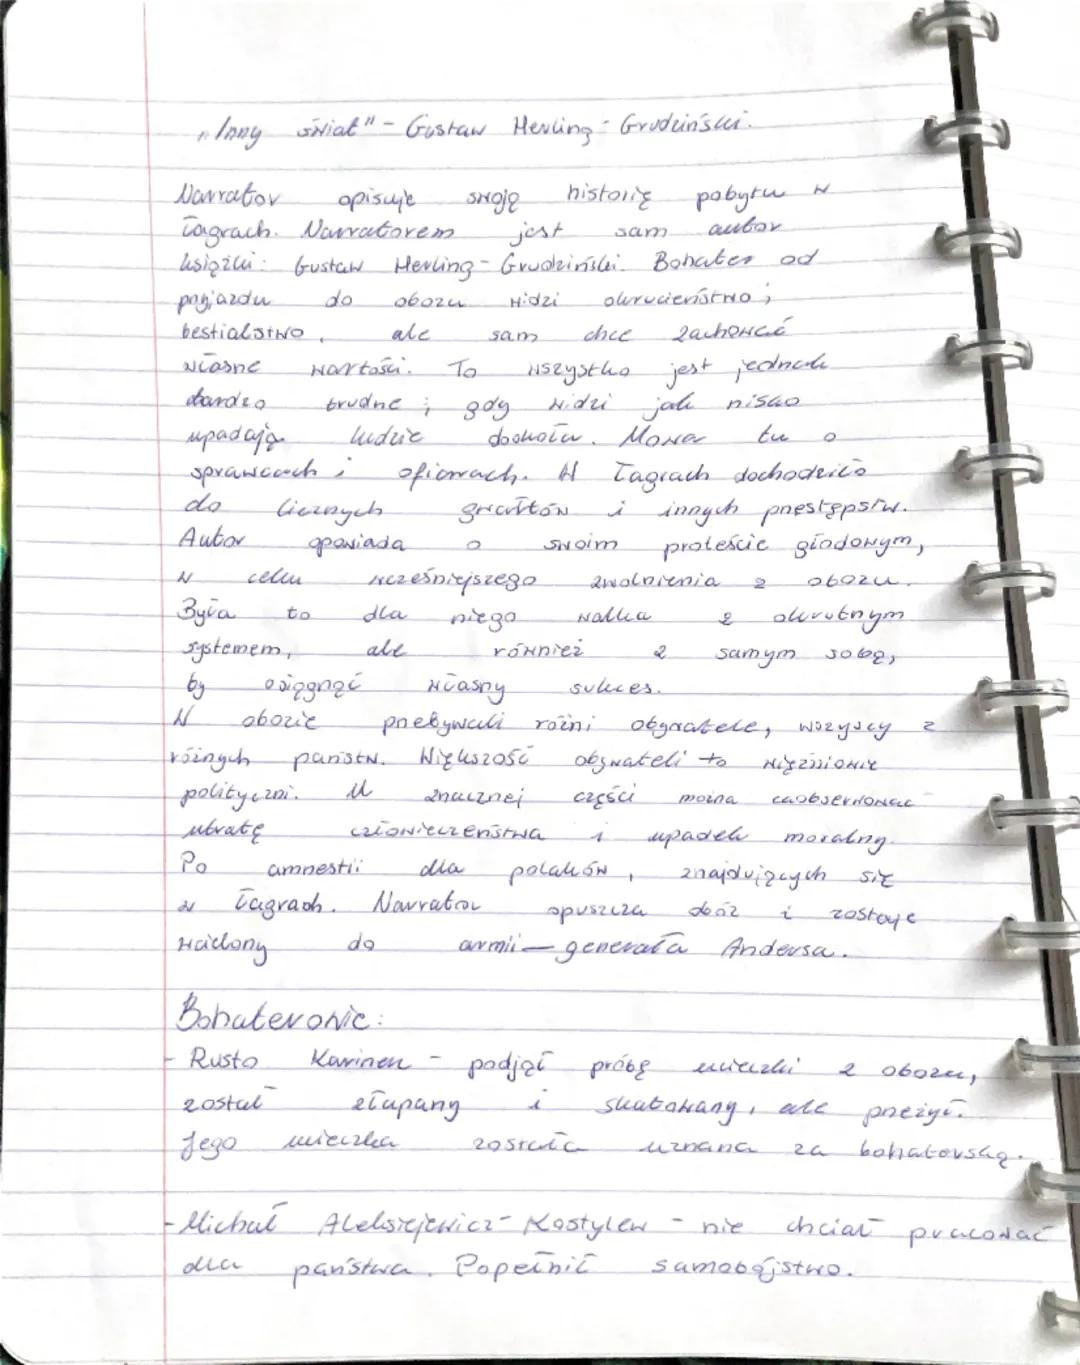 „Inny świat" - Gustaw Herling - Grudziński.
Narrator opisuje swoją historię pobytu w
łagrach. Narratorem jest sam autor
książki: Gustaw Herling - Grudziński. Bohater od
przyjazdu do obozu widzi okrucieństwo i
bestialstwo, ale sam chce zachować
własne wartości. To wszystko jest jednak
bardzo trudne i gdy widzi jak nisko
upadają ludzie dookoła. Mowa tu o
sprawcach i ofiarach. W łagrach dochodziło
do licznych gwałtów i innych przestępstw.
Autor opowiada o swoim proteście głodowym,
w celu wcześniejszego zwolnienia z obozu.
Była to dla niego walka z okrutnym
systemem, ale również z samym sobą,
by osiągnąć własny sukces.
W obozie przebywali różni obywatele, wszyscy z
różnych państw. Większość obywateli to więźniowie
polityczni. W znacznej części można zaobserwować
utratę człowieczeństwa i upadek moralny.
Po amnestii dla polaków, znajdujących się
w łagrach. Narrator opuszcza obóz i zostaje
wcielony do armii — generała Andersa.
Bohaterowie:
- Rusto Karinen - podjął próbę ucieczki z obozu,
został złapany i skatowany, ale przeżył.
Jego ucieczka została uznana za bohaterską.
- Michał Aleksiejewicz - Kostylew - nie chciał pracować
dla państwa. Popełnił samobójstwo.